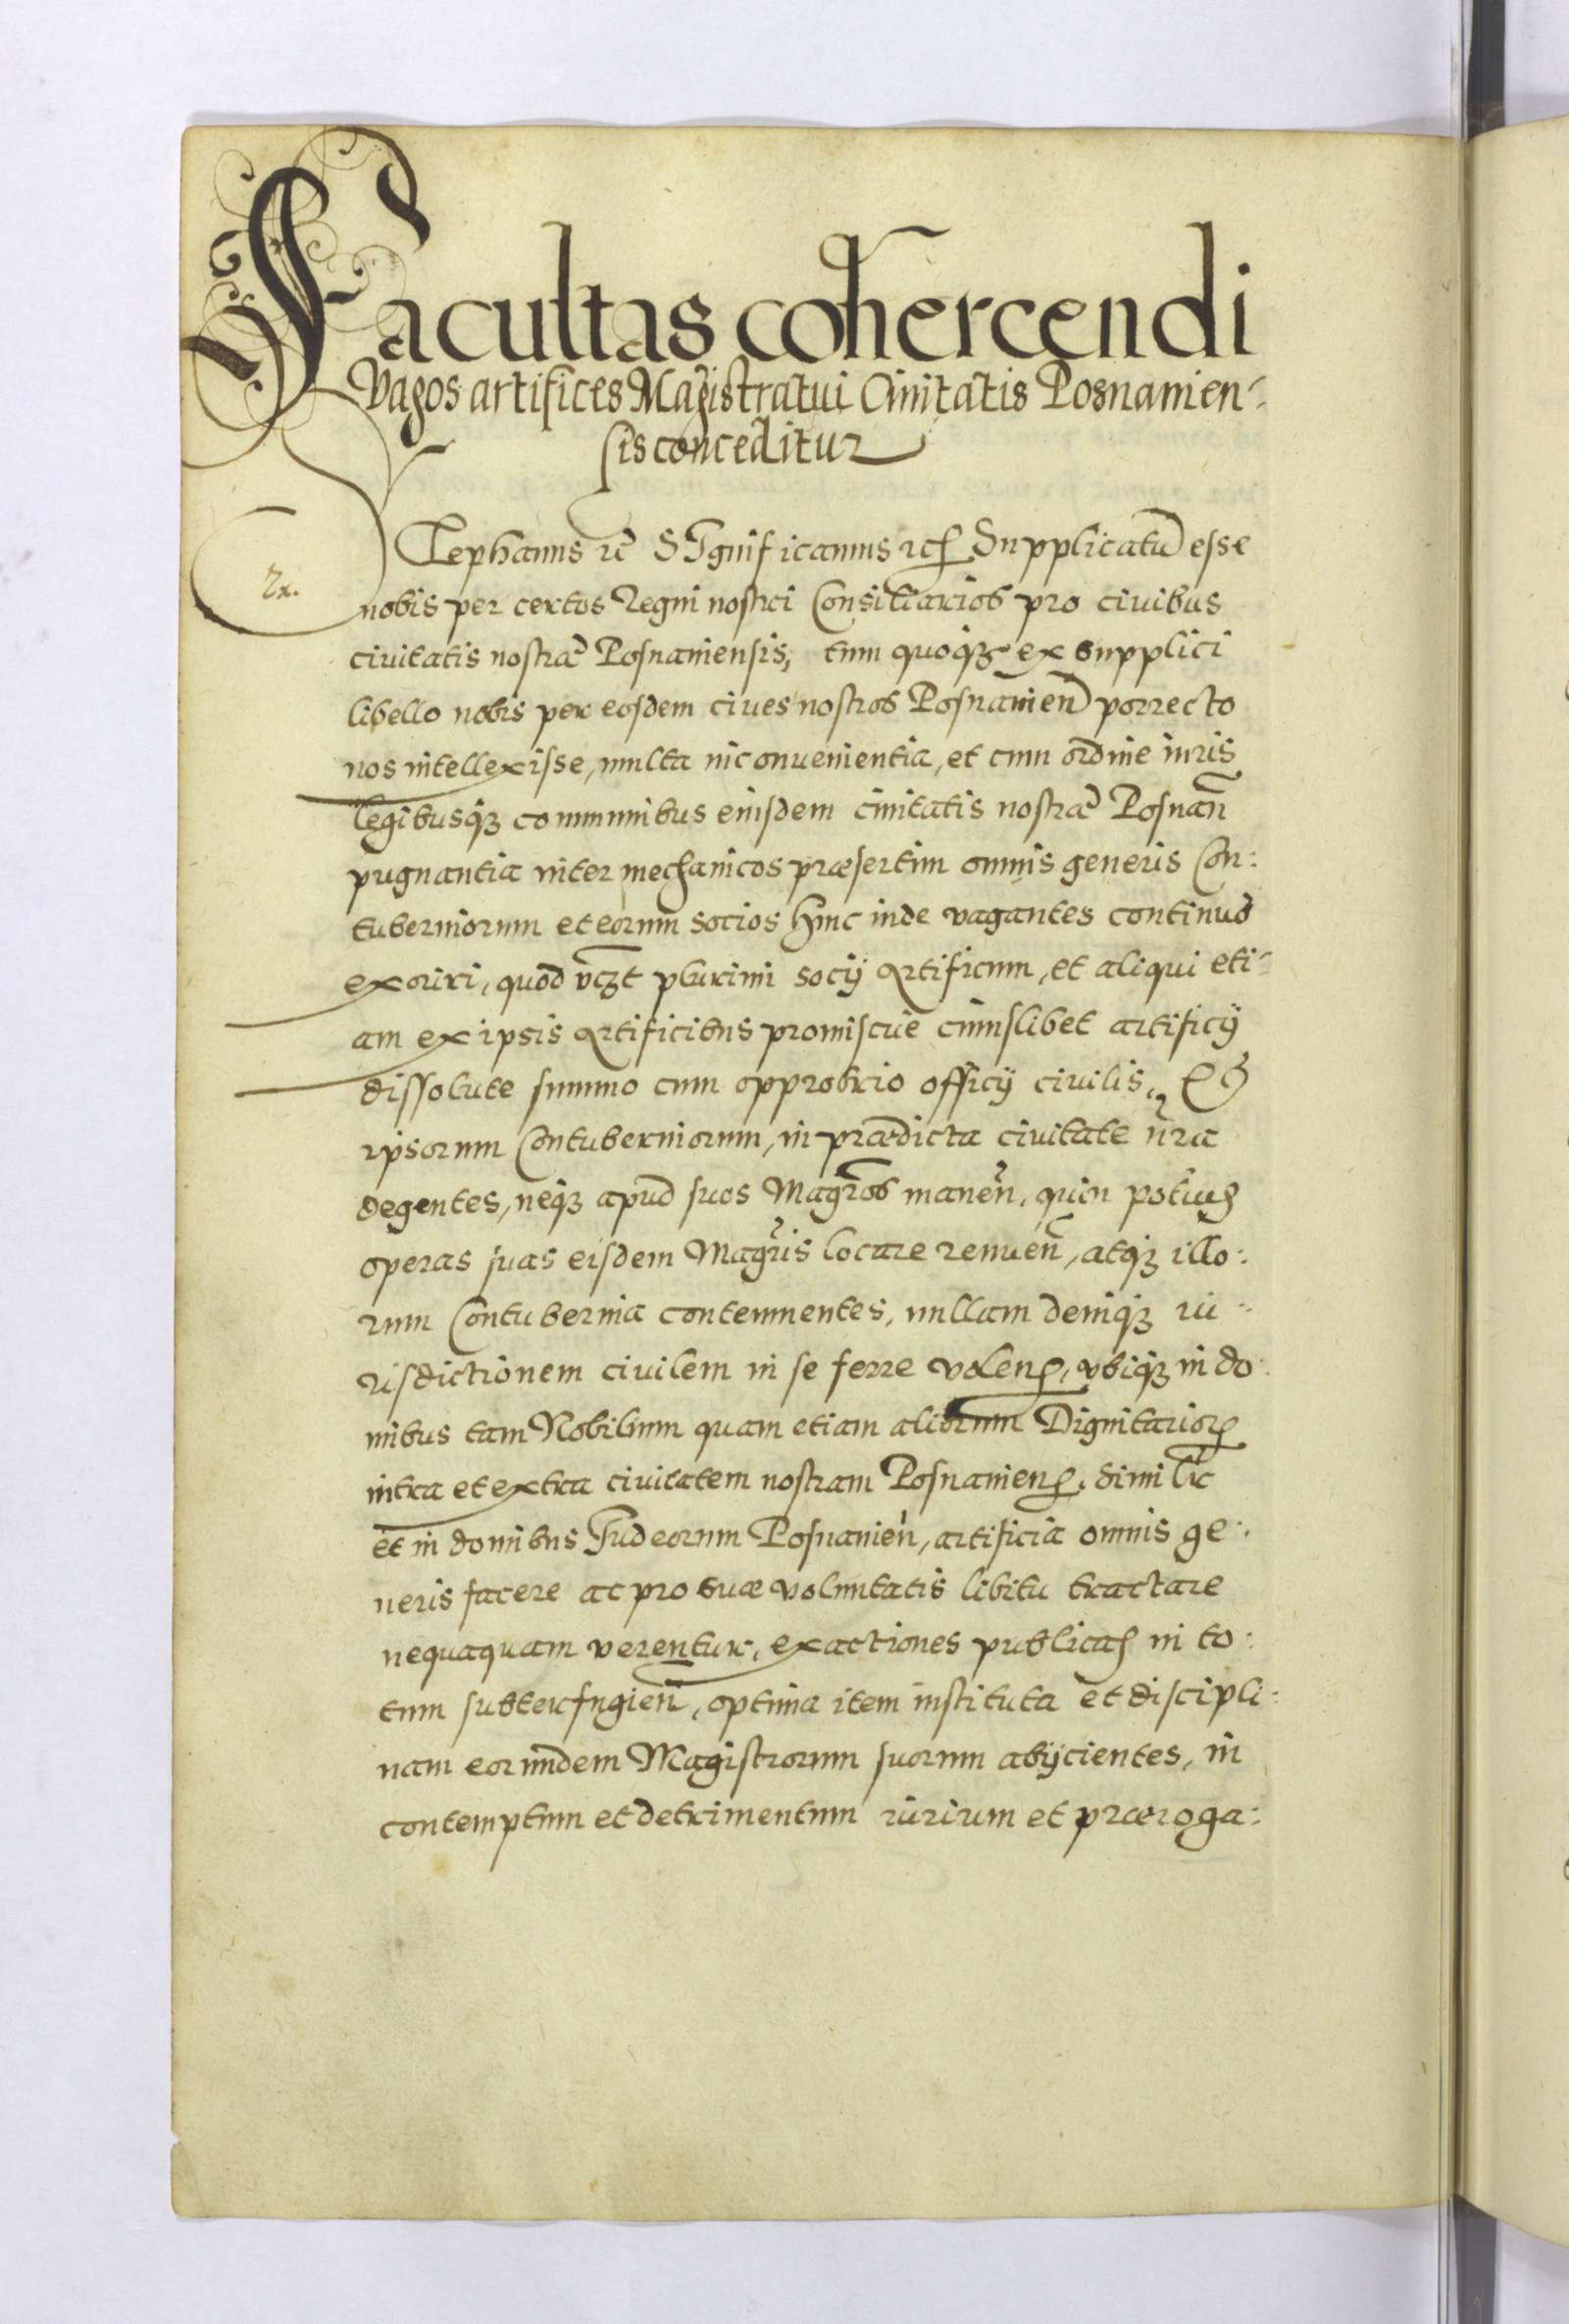 Facultas cohercendi
Vagos artifices Magistratui Ciuitatis Posnanien-
sis conceditur
Stephanus etc̃ SIgnificamus etc̃ Supplicatũ esse
nobis per certos Regni nostri Consiliarios pro ciuibus
ciuitatis nostræ Posnaniensis, tum quoq3 ex supplici
libello nobis per eosdem ciues nostros Posnanien̄ porrecto
nos intellexisse, multa inconuenientia, et cum ordine iuris
legibusq3 communibus eiusdem ciuitatis nostræ Posnan̄
pugnantia inter mechanicos præsertim omnis generis Con:
tuberniorum et eorum socios hinc inde vagantes continuò
exoriri, quòd vczt plurimi socij Artificum, et aliqui eti-
am ex ipsis Artificibus promiscuè cuiuslibet artificij
dissolute summo cum opprobrio officij ciuilis, &
ipsorum Contuberniorum, in prædicta ciuitate nr̄a
degentes, neq3 apud suos Magr̄os manen̄, quin potius
operas suas eisdem Magr̄is locare renuen̄, atq3 illo:
rum Contubernia contemnentes, nullam deniq3 iu-
risdictionem ciuilem in se ferre volen, vbiq3 in do:
mibus tam Nobilium quam etiam aliorum Dignitarior
intra et extra ciuitatem nostram Posnanien, Similr̄
et in domibus Iudeorum Posnanien̄, artificia omnis ge:
neris facere ac pro suæ voluntatis libitu tractare
nequaquam verentur, exactiones publicas in to:
tum subterfugien̄, optima item instituta et discipli:
nam eorundem Magistrorum suorum abijcientes, in
contemptum et detrimentum iurium et præroga: